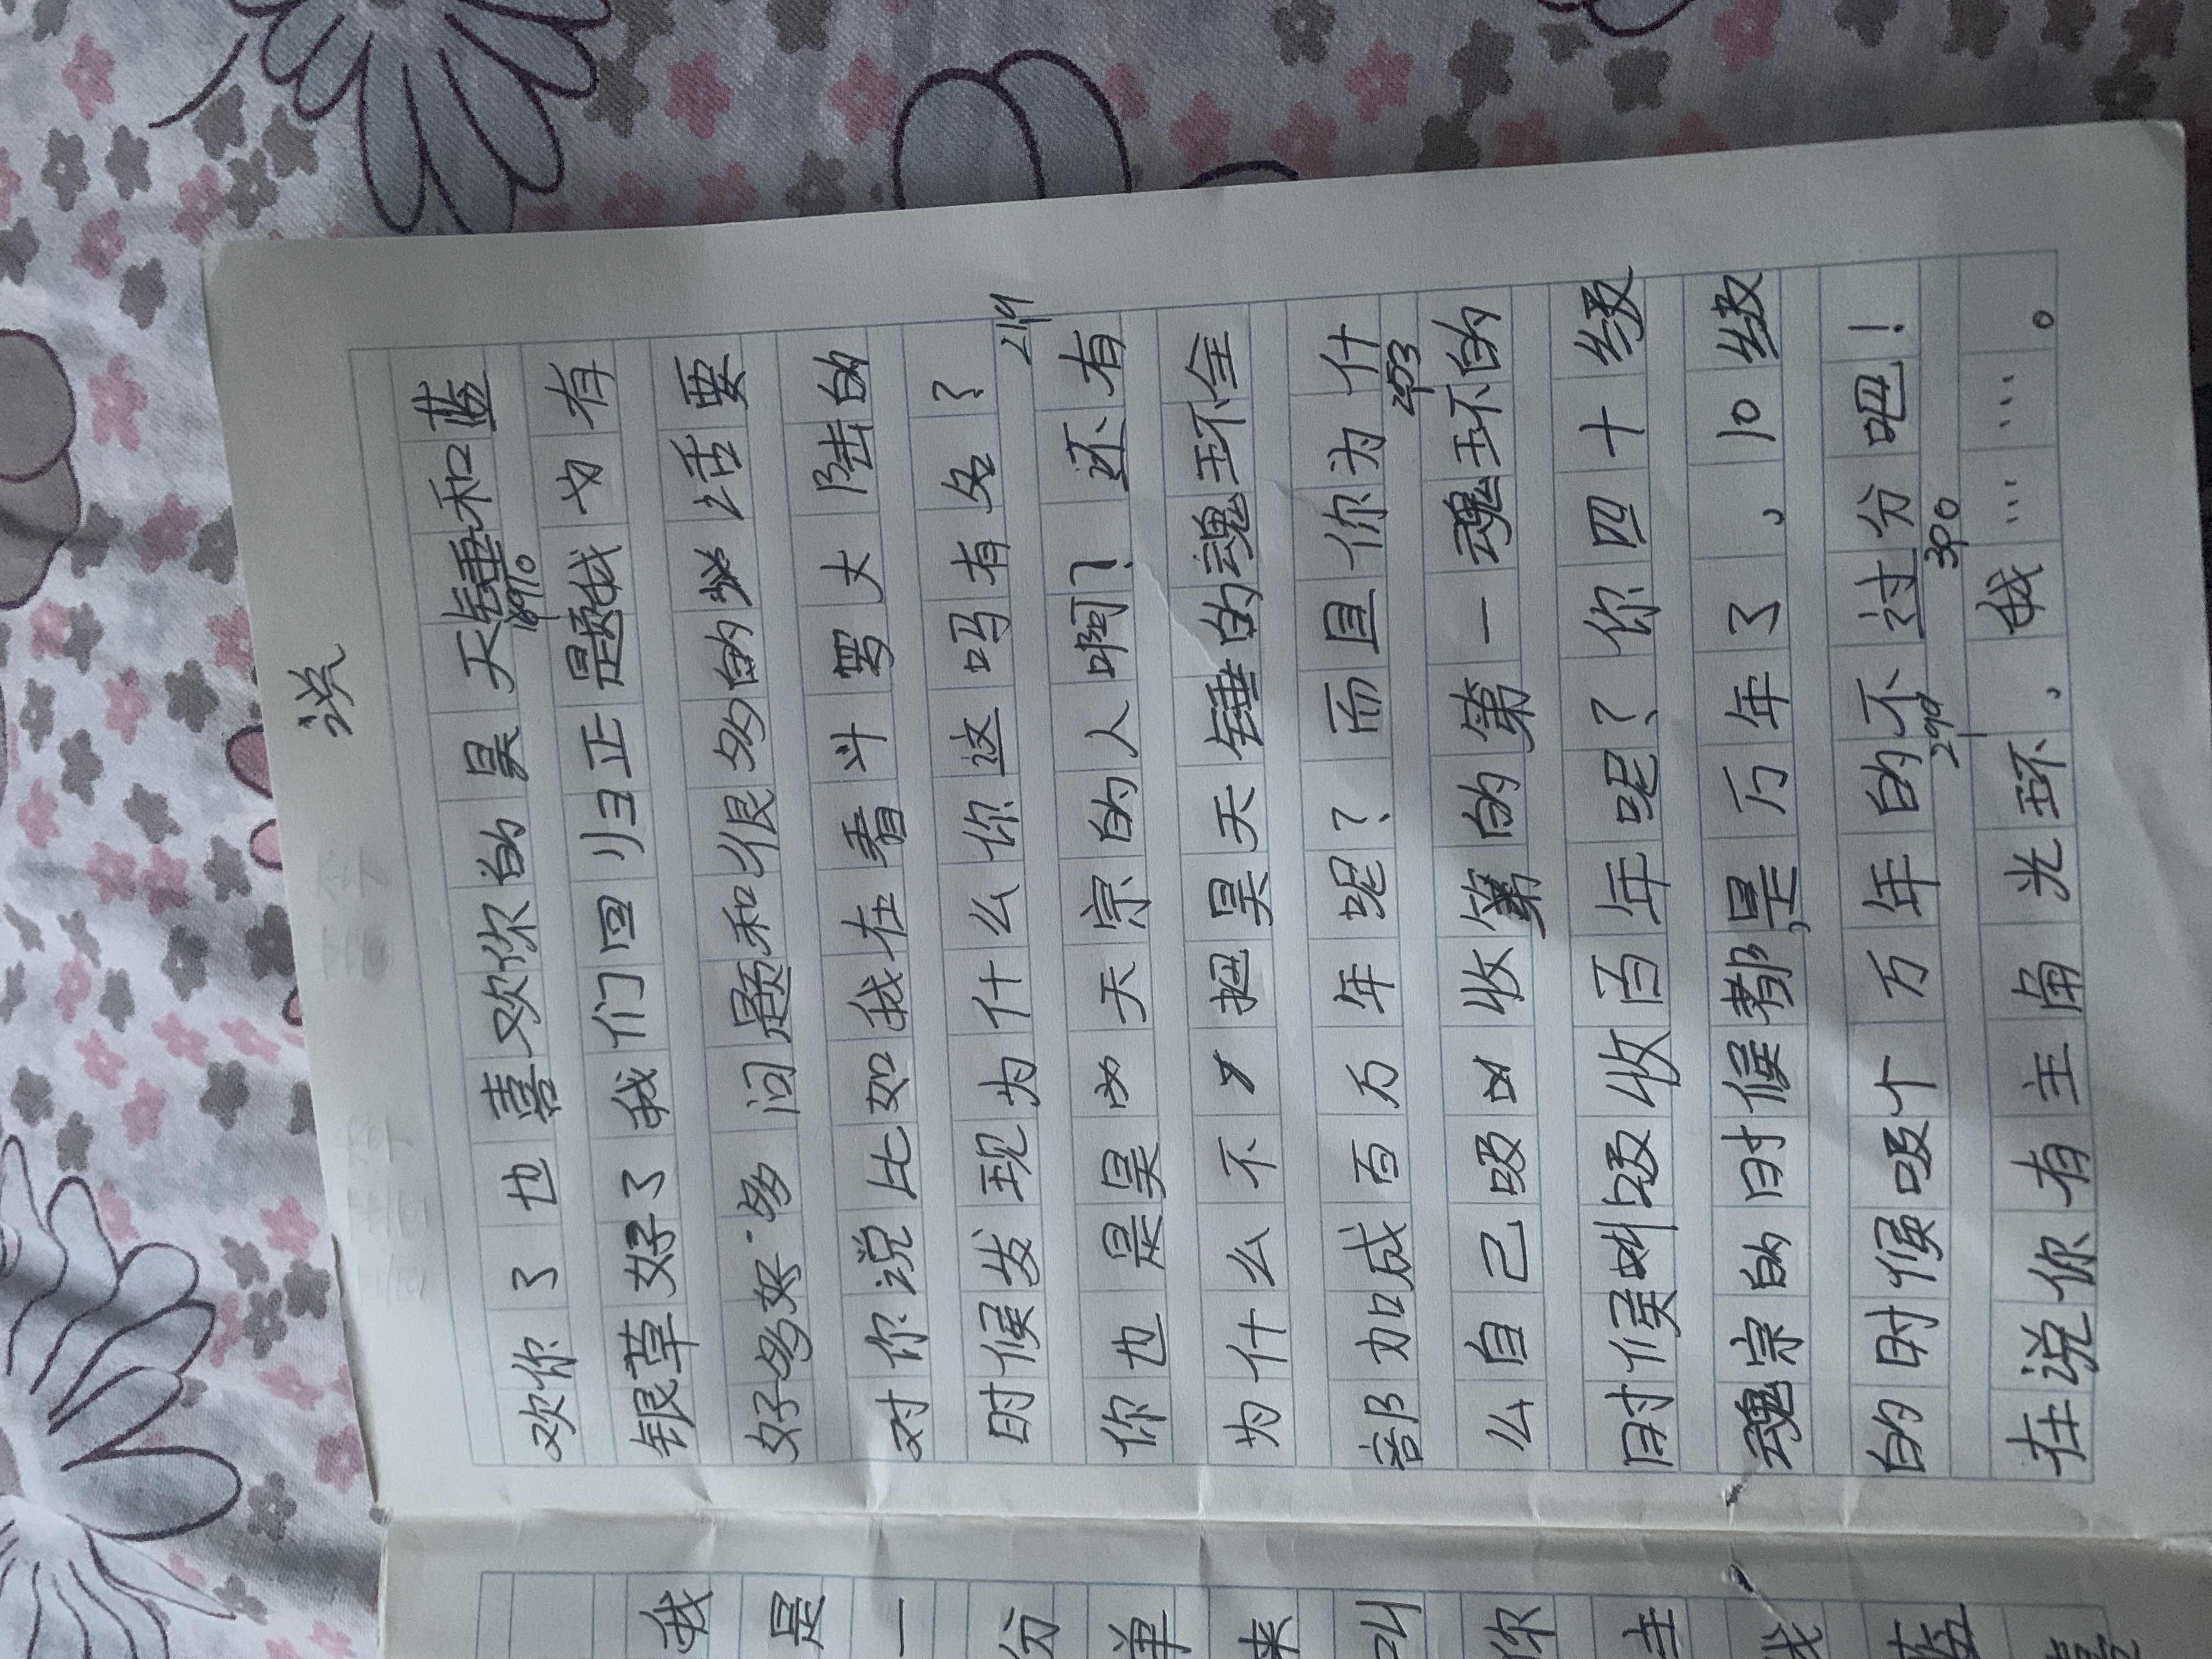 说
欢你了也喜欢你的昊天锤和蓝
银草好了我们回归正题我有
好多好多问题和很多的话要
对你说比如我在看斗罗大陆的
时候发现为什么你这吗有名?
你也是昊天宗的人啊?还有
为什么不把昊天锤的魂环全
部加成百万年呢?而且你为什
么自己吸收第一魂环的
时候吸收百年呢?你四十级
魂宗的时候都是万年了,10级
的时候吸个万年的不过分吧!
在说你有主角光环,我……。
189
219
290
300
我
是
一
分
单
来
叫
你
主
我
蓝